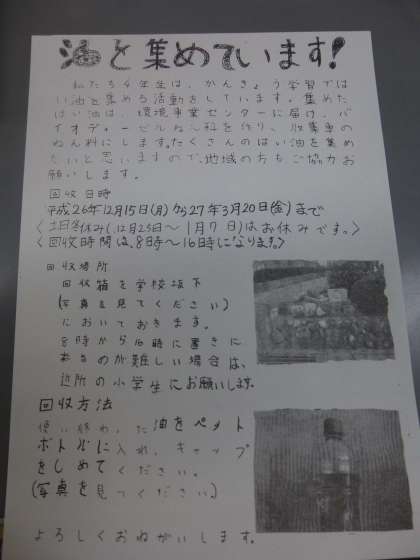 油を集めています!
私たち4年生は、かんきょう学習では
い油を集める活動をしています。集めた
はい油は、環境事業センターに届け、バ
イオディーゼルねん料を作り、収集車の
ねん料にします。たくさんのはい油を集め
たいと思いますので、地域の方もご協力お
願いします。
回収日時
平成26年12月15日(月)から27年3月20日(金)まで
〈土日冬休み(12月25日〜1月7日)はお休みです。〉
〈回収時間は、8時〜16時になります。〉
回収場所
回収箱を学校坂下
(写真を見てください)
においておきます。
8時から16時に置きに
来るのが難しい場合は、
近所の小学生にお願いします。
回収方法
使い終わった油をペット
ボトルに入れ、キャップ
をしめてください。
(写真を見てください。)
よろしくおねがいします。